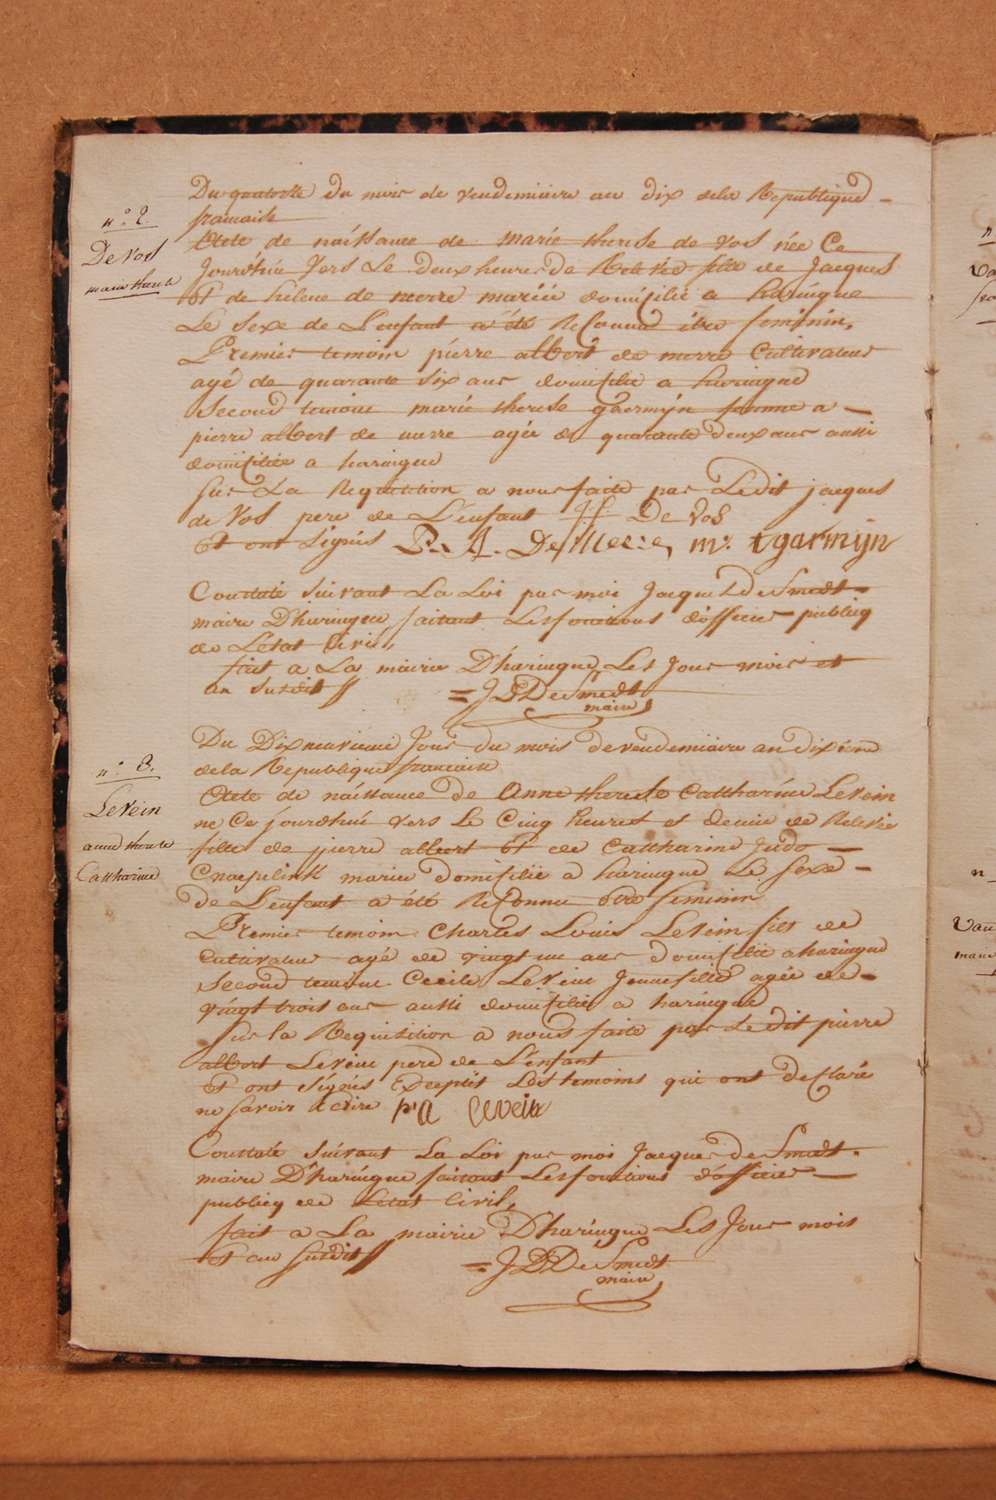 n.° 2.
De vos
marie therese
Du quatorze du mois de vendemiaire an dix dela Republique
francaise
Acte de naissance de marie therese de vos née Ce
jourdhui vers Le deux heures de Relevée fille de jacques
Et de helene de merre mariée domicilié a haringue
Le sexe de L'enfant a été Reconnu être feminin.
Premier temoin pierre albert de merre Cultivateur
agé de quarante six ans domicilié a haringue
second temoin marie therese ghermijn femme a
pierre albert de merre agée de quarante deux ans aussi
domiciliée a haringue
sur La Requisition a nous faite par Ledit jacques
de vos pere de L'enfant J.f De vos
Et ont signés P. A. De Merre, m. t gharmijn
Constaté suivant La Loi par moi jacques De Smedt
maire D'haringue faisant Les fonctions d'officier publicq
de L'état Civil,
fait a La mairie D'haringue Les jour mois et
an susdits J D De Smedt
maire
n.° 3.
Levein
anne therese
Catharine
Du Dixneuvieme jour du mois de vendemiaire an dixieme
dela Republique francaise
Acte de naissance de Anne therese Catharine Levein
ne Ce jourdhui vers Le Cinq heures et demie de Relevée
fille de pierre albert Et de Catharine judo
Cnaepelink mariée domicilié a haringue Le sexe
de L'enfant a été Reconnu être feminin
Premier temoin Charles Louis Levein fils de
Cultivateur agé de vingt un ans domicilié a haringue
second temoin Cecile Levein jeune fille agée de
vingt trois ans aussi domicilié a haringue
sur la Requisition a nous faite par Le dit pierre
albert Levein pere de L'enfant
Et ont signés Exceptés Les temoins qui ont declaré
ne savoir Ecrire p A Levein
Constaté suivant La Loi par moi jacques de Smedt
maire D'haringue faisant Les fonctions d'officier
publicq de L'état Civil,
fait a La mairie D'haringue Les jour mois
Et an susdits J D De Smedt
maire